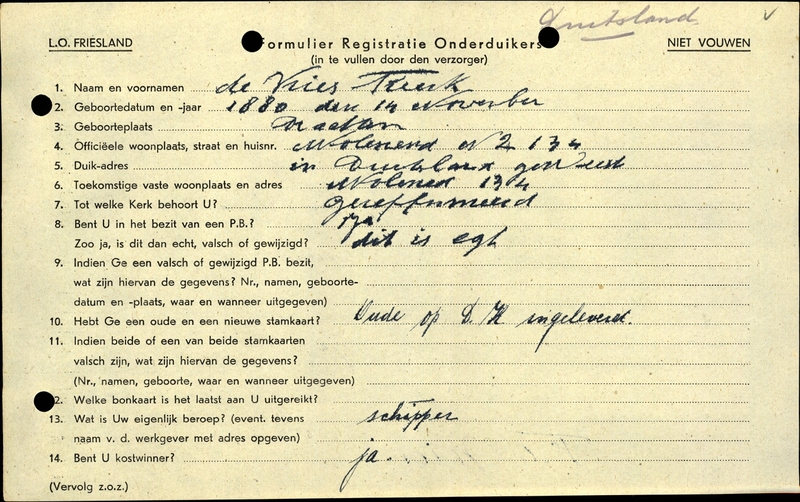 Duitsland
L.O. FRIESLAND
Formulier Registratie Onderduikers
NIET VOUWEN
(in te vullen door den verzorger)
1. Naam en voornamen de Vries
2. Geboortedatum en -jaar 1880 den 14 November
3. Geboorteplaats Drachten
4. Officiëele woonplaats, straat en huisnr. Molenend N Z 134
5. Duik-adres in Duitsland geweest
6. Toekomstige vaste woonplaats en adres Molenend 134
7. Tot welke Kerk behoort U? gereffermeerd
8. Bent U in het bezit van een P.B.? ja
Zoo ja, is dit dan echt, valsch of gewijzigd? dit is egt
9. Indien Ge een valsch of gewijzigd P.B. bezit,
wat zijn hiervan de gegevens? Nr., namen, geboorte-
datum en -plaats, waar en wanneer uitgegeven)
10. Hebt Ge een oude en een nieuwe stamkaart? Oude op D.K ingeleverd.
11. Indien beide of een van beide stamkaarten
valsch zijn, wat zijn hiervan de gegevens?
(Nr., namen, geboorte, waar en wanneer uitgegeven)
2. Welke bonkaart is het laatst aan U uitgereikt?
13. Wat is Uw eigenlijk beroep? (event. tevens schipper
naam v. d. werkgever met adres opgeven)
14. Bent U kostwinner? ja
(Vervolg z.o.z.)